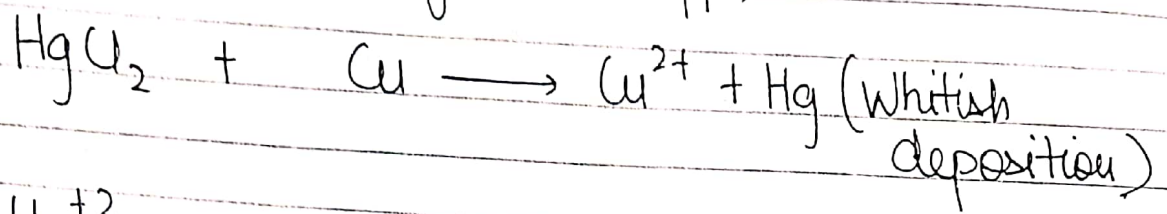 HgCl₂ + Cu ⟶ Cu²⁺ + Hg (Whitish
deposition)